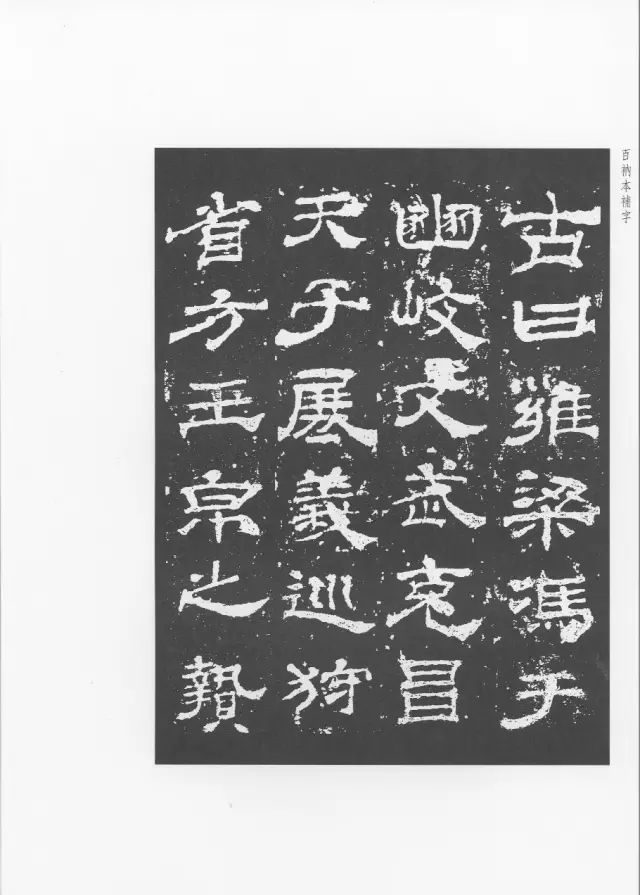 百衲本補字
古曰雍梁馮于
豳岐文武克昌
天子展義巡狩
省方玉帛之贄